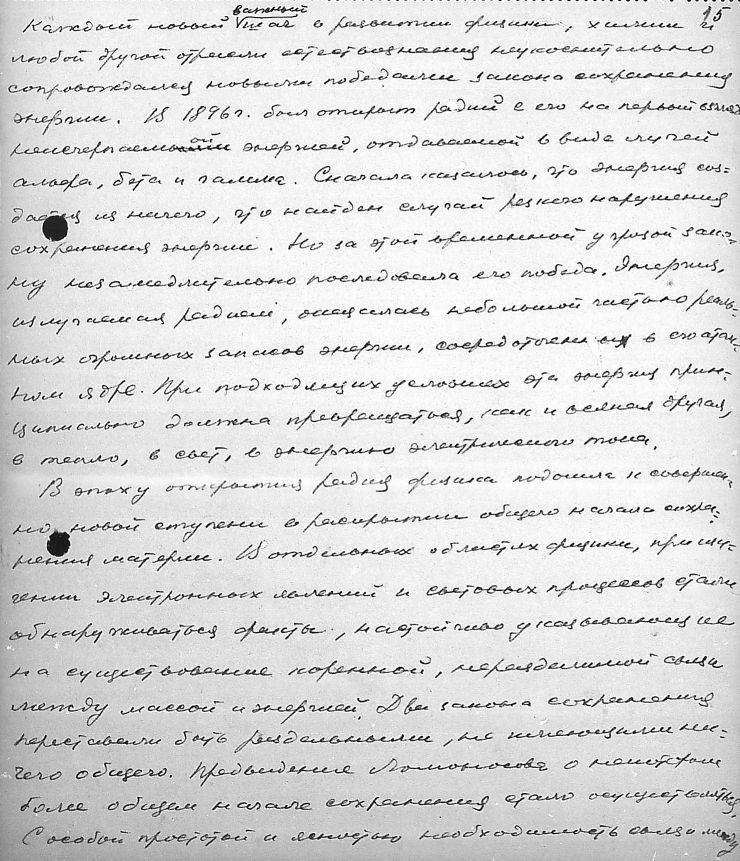 15
важный
Каждый новый шаг в развитии физики, химии и
любой другой отрасли естествознания неукоснительно
сопровождался новыми победами закона сохранения
энергии. В 1896 г. был открыт радий с его на первый взгляд
неисчерпаемой энергией, отдаваемой в виде лучей
альфа, бета и гамма. Сначала казалось, что энергия соз-
дается из ничего, что найден случай резкого нарушения
сохранения энергии. Но за этой временной угрозой зако-
ну незамедлительно последовала его победа. Энергия,
излучаемая радием, оказалась небольшой частью реаль-
ных огромных запасов энергии, сосредоточенных в его атом-
ном ядре. При подходящих условиях эта энергия прин-
ципиально должна превращаться, как и всякая другая,
в тепло, в свет, в энергию электрического тока.
В эпоху открытия радия физика подошла к совершен-
но новой ступени в раскрытии общего начала сохра-
нения материи. В отдельных областях физики, при изу-
чении электронных явлений и световых процессов стали
обнаруживаться факты, настойчиво указывающие
на существование коренной, неразделимой связи
между массой и энергией. Два закона сохранения
переставали быть раздельными, не имеющими ни-
чего общего. Предвидение Ломоносова о некотором
более общем начале сохранения стало осуществляться.
С особой простотой и ясностью необходимость связи между